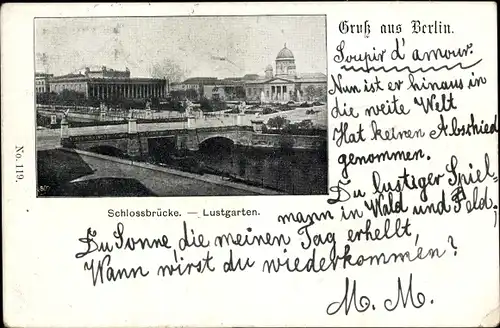 Gruß aus Berlin.
Soupir d'amour.
Nun ist er hinaus in
die weite Welt
Hat keinen Abschied
genommen.
Du lustiger Spiel-
mann in Wald und Feld,
Du Sonne, die meinen Tag erhellt,
Wann wirst du wiederkommen?
M. M.
No. 119.
Schlossbrücke. — Lustgarten.